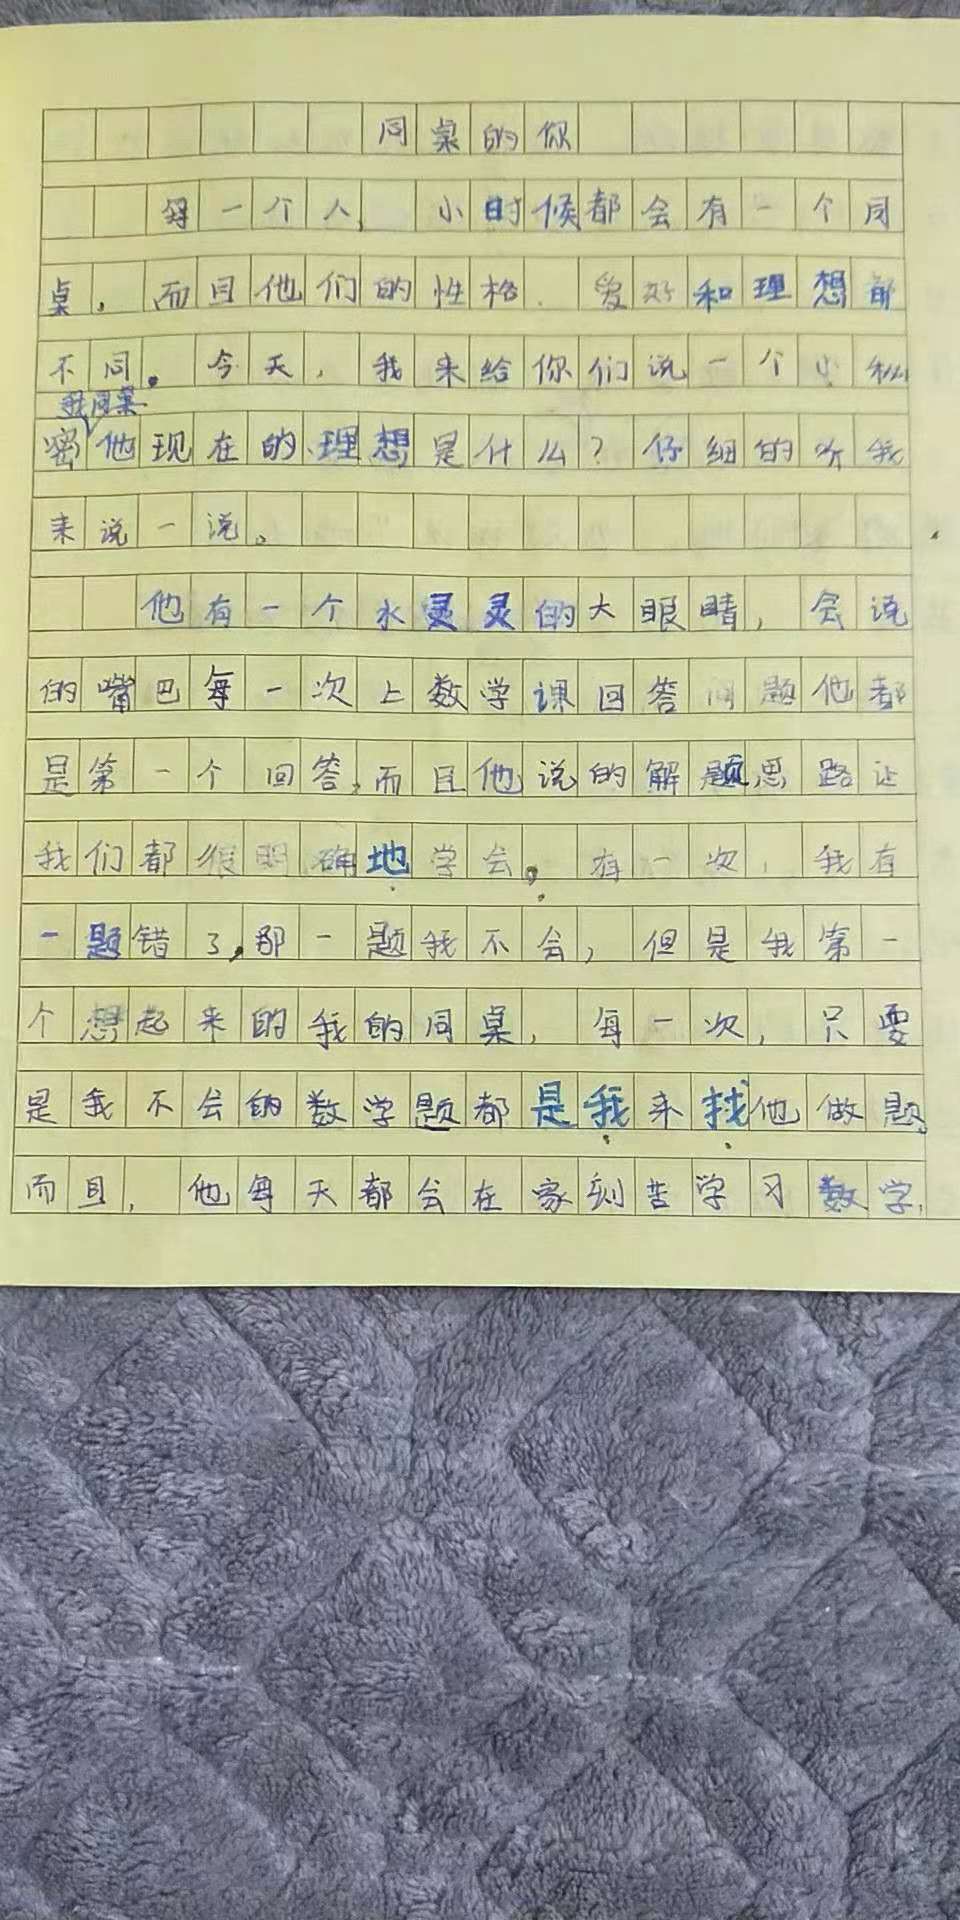 同桌的你
每一个人,小时候都会有一个同
桌，而且他们的性格、爱好和理想都
不同。今天，我来给你们说一个小秘
我同桌
密他现在的理想是什么？仔细的听我
来说一说。
他有一个水灵灵的大眼睛，会说
的嘴巴每一次上数学课回答问题他都
是第一个回答,而且他说的解题思路让
我们都很明确地学会。有一次，我有
一题错了,那一题我不会，但是我第一
个想起来的我的同桌，每一次，只要
是我不会的数学题都是我来找他做题,
而且，他每天都会在家刻苦学习数学,